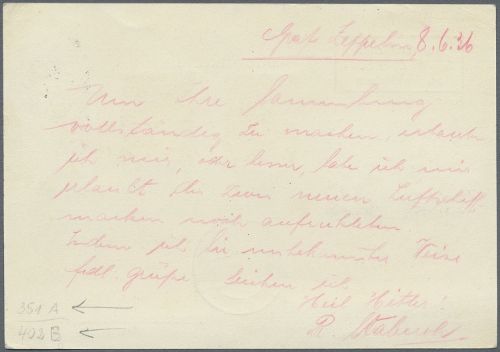 Graf Zeppelin, 8.6.36
Um ihre Sammlung
vollständig zu machen, erlaube
ich mir, oder besser, habe ich mir
erlaubt die zwei neuen Luftschiff
marken noch aufzukleben.
Indem ich Sie unbekannter Weise
frdl. grüße zeichne ich
Heil Hitler!
351 A
402 B